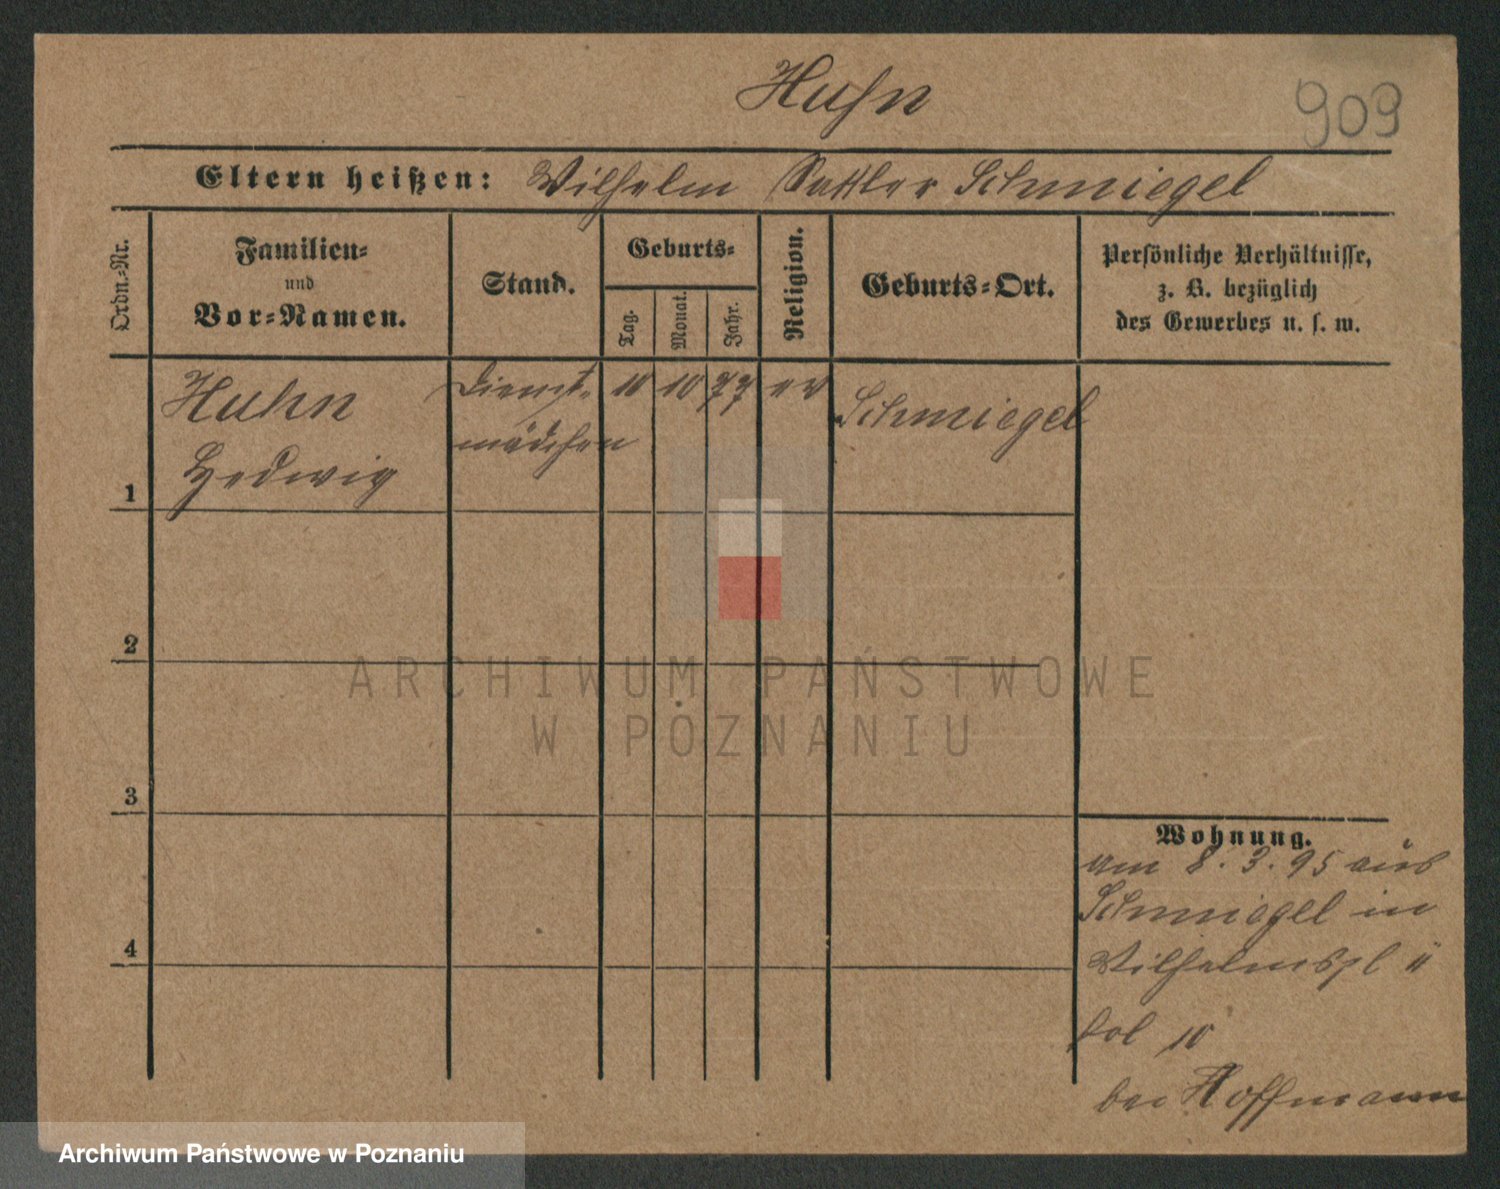 Huhn
909
Eltern heißen: Wilhelm Sattler Schmiegel
Ordn.-Nr.
Familien-
und
Vor-Namen.
Stand.
Geburts-
Tag.
Monat.
Jahr.
Religion.
Geburts-Ort.
Persönliche Verhältnisse,
z. B. bezüglich
des Gewerbes u. s. w.
1
Huhn
Hedwig
Dienst-
mädchen
10
10
77
ev
Schmiegel
2
3
4
Wohnung.
am 8. 3. 95 aus
Schmiegel in
Wilhelmspl
fol 10
bei Hoffmann
ARCHIWUM PAŃSTWOWE
W POZNANIU
Archiwum Państwowe w Poznaniu